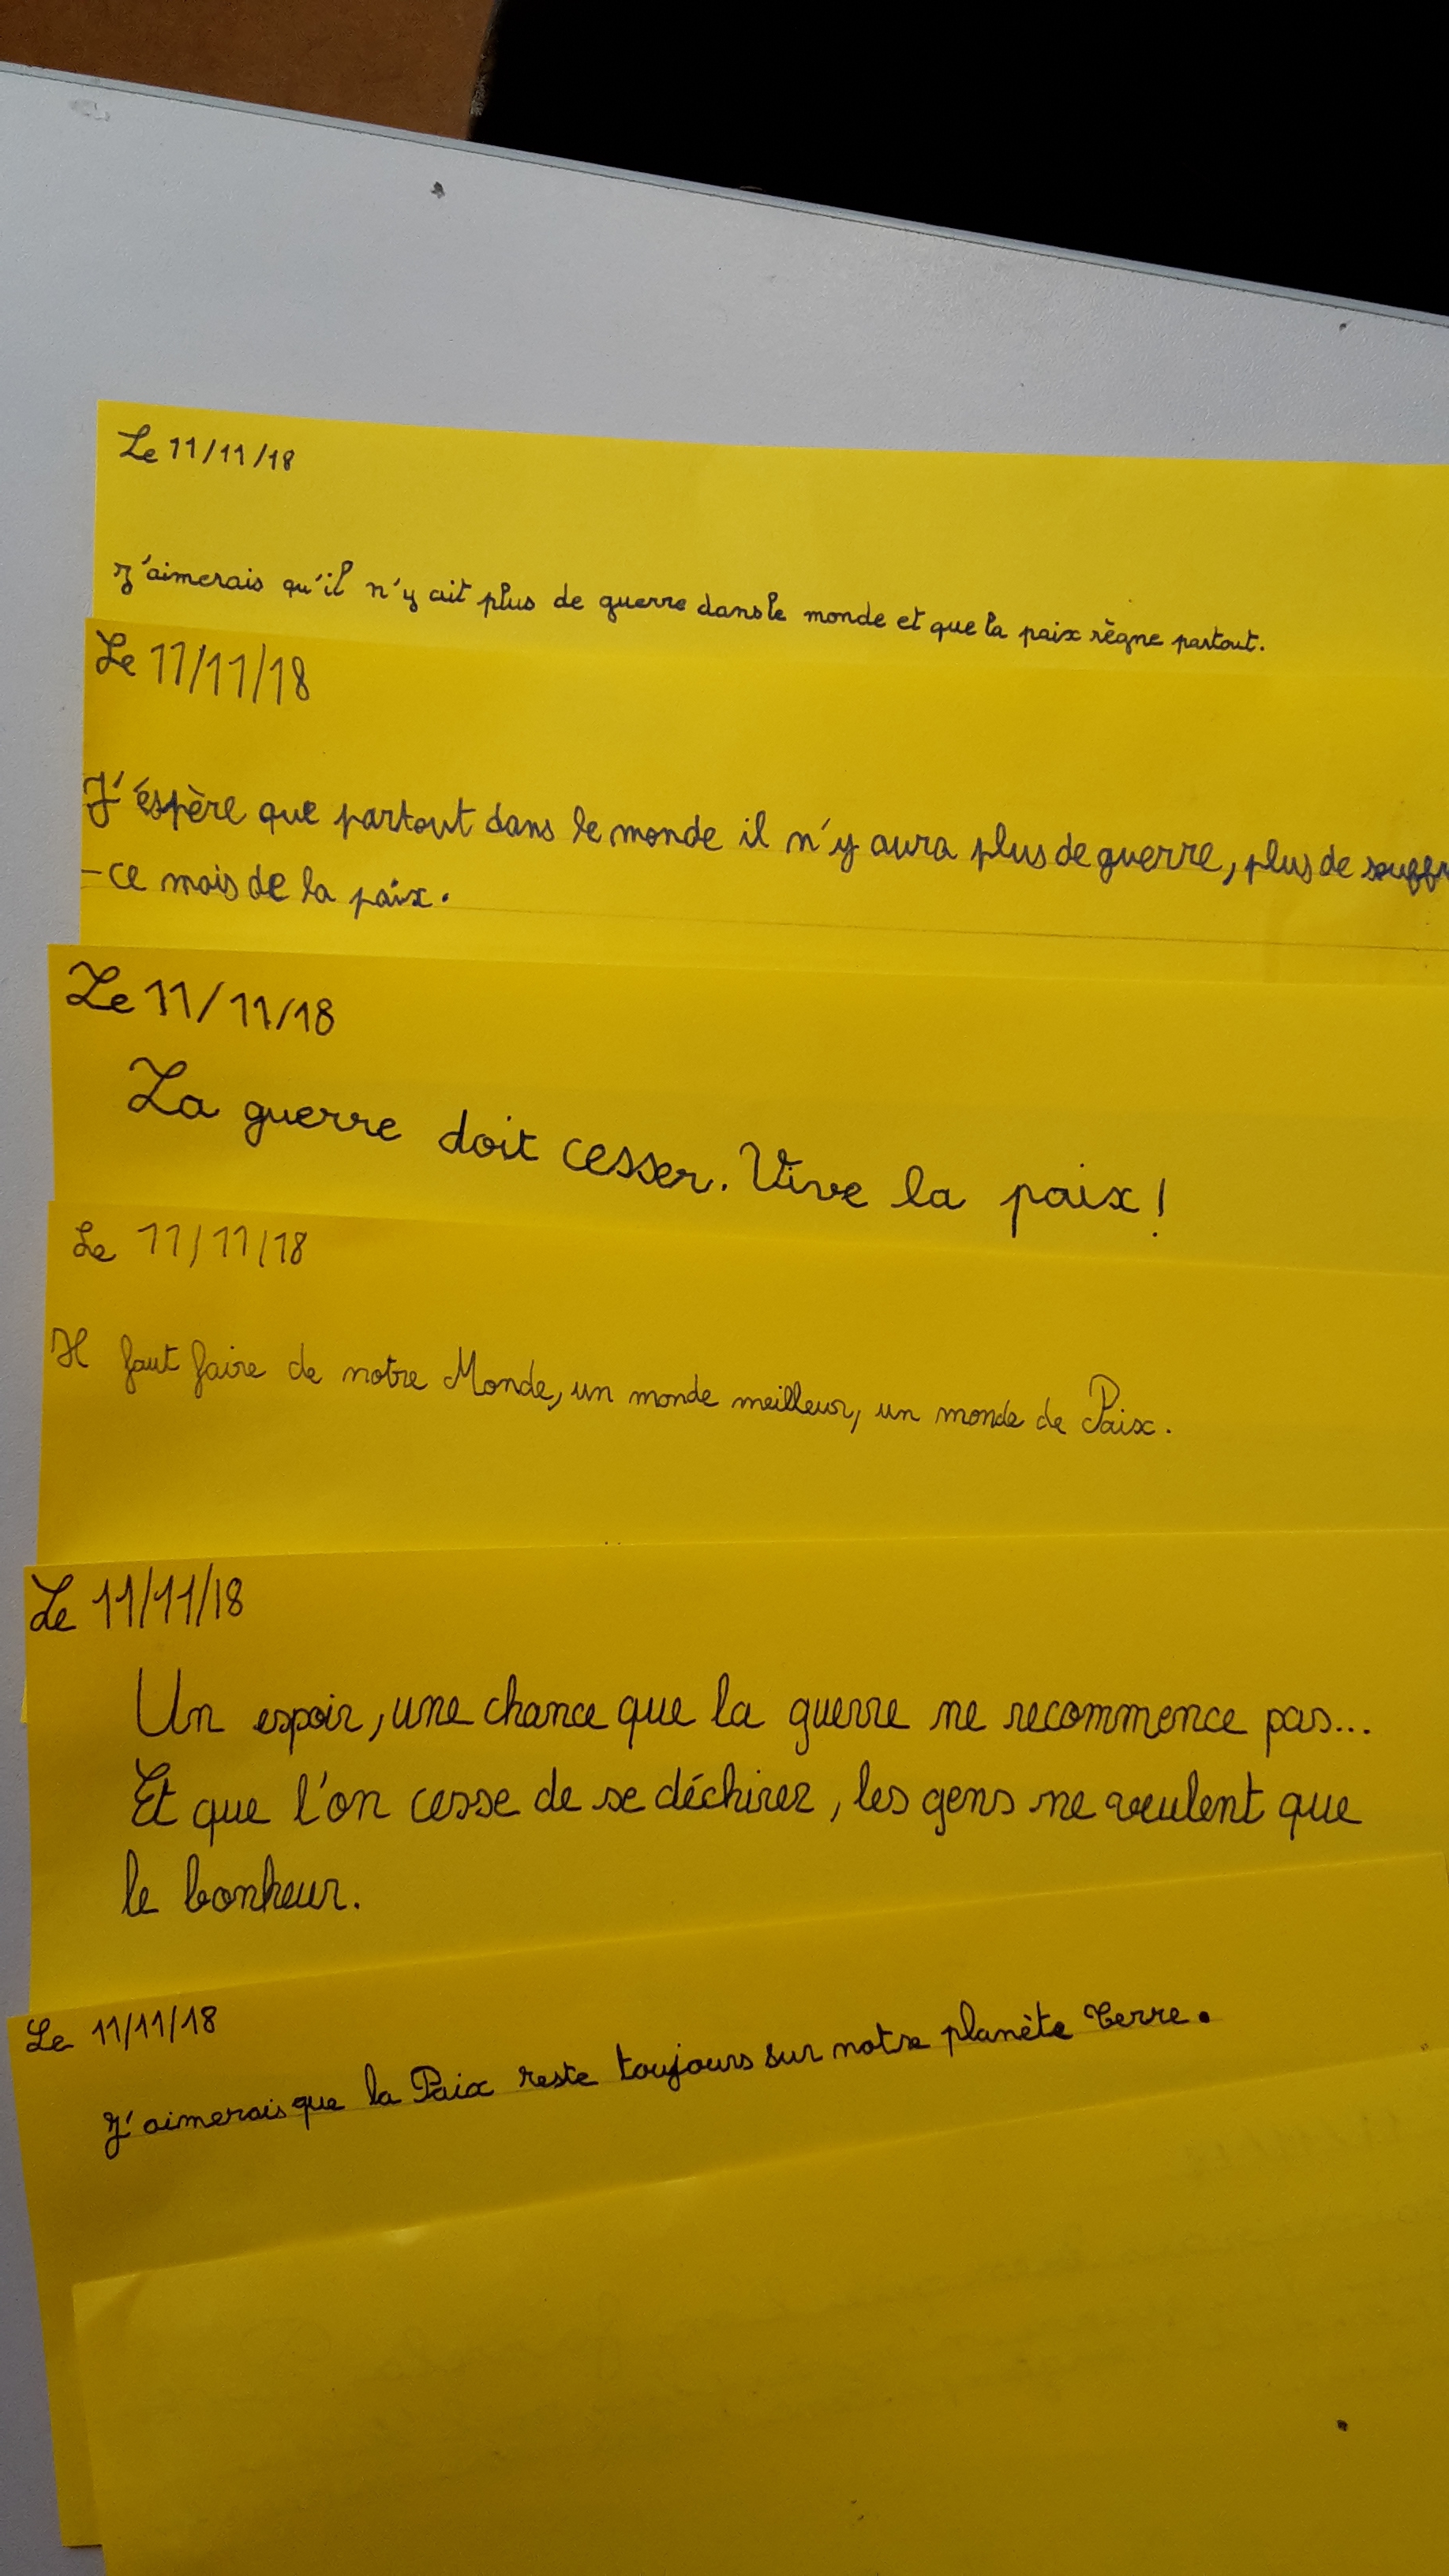 Le 11/11/18
J'aimerais qu'il n'y ait plus de guerre dans le monde et que la paix règne partout.
Le 11/11/18
J'éspère que partout dans le monde il n'y aura plus de guerre, plus de
-ce mais de la paix.
Le 11/11/18
La guerre doit cesser. Vive la paix !
Le 11/11/18
Il faut faire de notre Monde, un monde meilleur, un monde de Paix.
Le 11/11/18
Un espoir, une chance que la guerre ne recommence pas...
Et que l'on cesse de se déchirer, les gens ne veulent que
le bonheur.
Le 11/11/18
J'aimerais que la Paix reste toujours sur notre planète Terre.